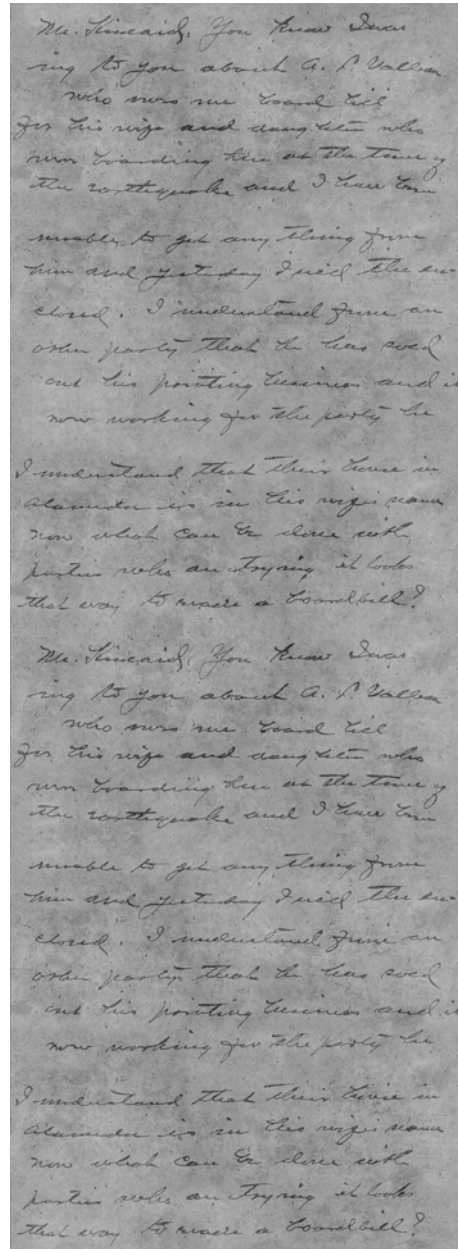 Mr. Kincaid, You know I was
ing to you about A. P.
who owes me board bill
for his wife and daughter who
were boarding here at the time of
the earthquake and I have been
unable to get any thing from
him and yesterday I the en-
closed. I understand from an
other party that he has sold
out his printing business and is
now working for the party he
I understand that their house in
Alameda is in his wife's name
now what can be done with
parties who are trying, it looks
that way to evade a boardbill?
Mr. Kincaid, You know I was
ing to you about A. P.
who owes me board bill
for his wife and daughter who
were boarding here at the time of
the earthquake and I have been
unable to get any thing from
him and yesterday I the en-
closed. I understand from an
other party that he has sold
out his printing business and is
now working for the party he
I understand that their house in
Alameda is in his wife's name
now what can be done with
parties who are trying, it looks
that way to evade a boardbill?